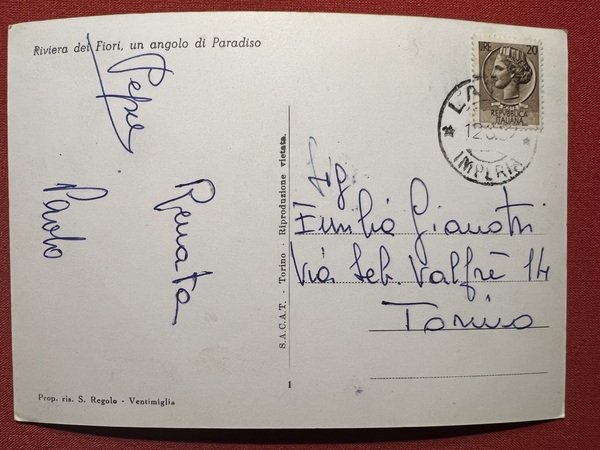 Riviera dei Fiori, un angolo di Paradiso
Pepe
Renata
Paolo
Prop. ris. S. Regolo - Ventimiglia
S.A.C.A.T. - Torino - Riproduzione vietata.
1
LIRE 20
REPVBBLICA
ITALIANA
IMPERIA
Sig
Emilia Gianotti
Via Seb. Valfrè 14
Torino